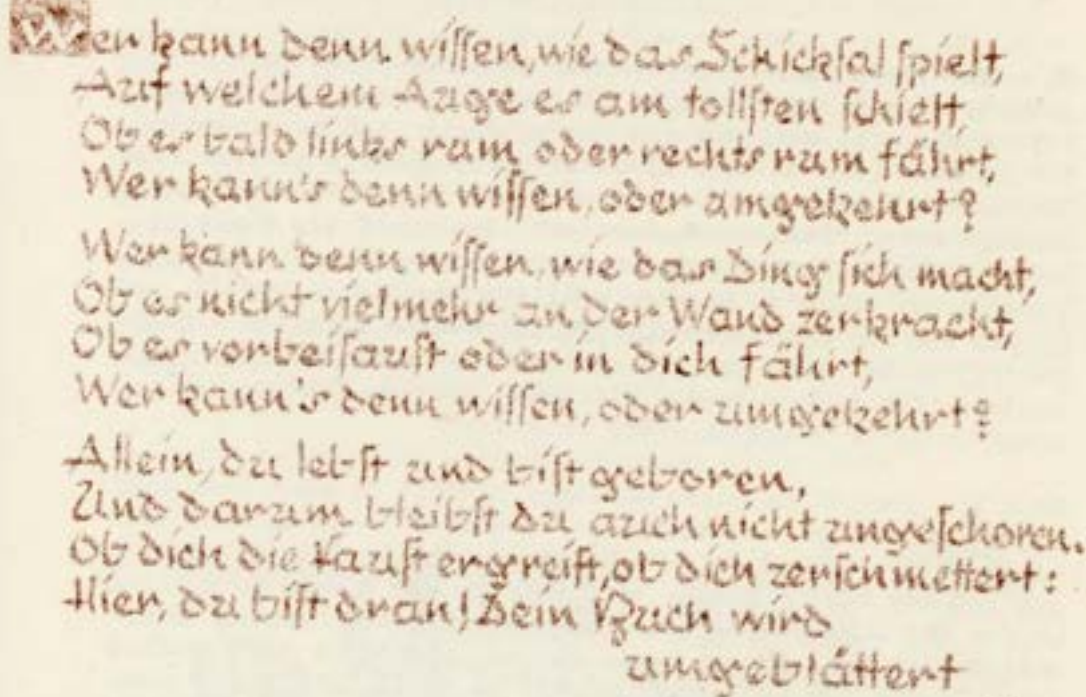 Wer kann denn wissen, wie das Schickſal ſpielt,
Auf welchem Auge es am tollſten ſchielt,
Ob es bald links rum oder rechts rum fährt,
Wer kann's denn wiſſen, oder umgekehrt?
Wer kann denn wiſſen, wie das Ding ſich macht,
Ob es nicht vielmehr an der Wand zerkracht,
Ob es vorbeiſauſt oder in dich fährt,
Wer kann's denn wiſſen, oder umgekehrt?
Allein, du lebſt und biſt geboren,
Und darum bleibſt du auch nicht ungeſchoren.
Ob dich die Fauſt ergreift, ob dich zerſchmettert:
Hier, du biſt dran! Dein Buch wird
umgeblättert